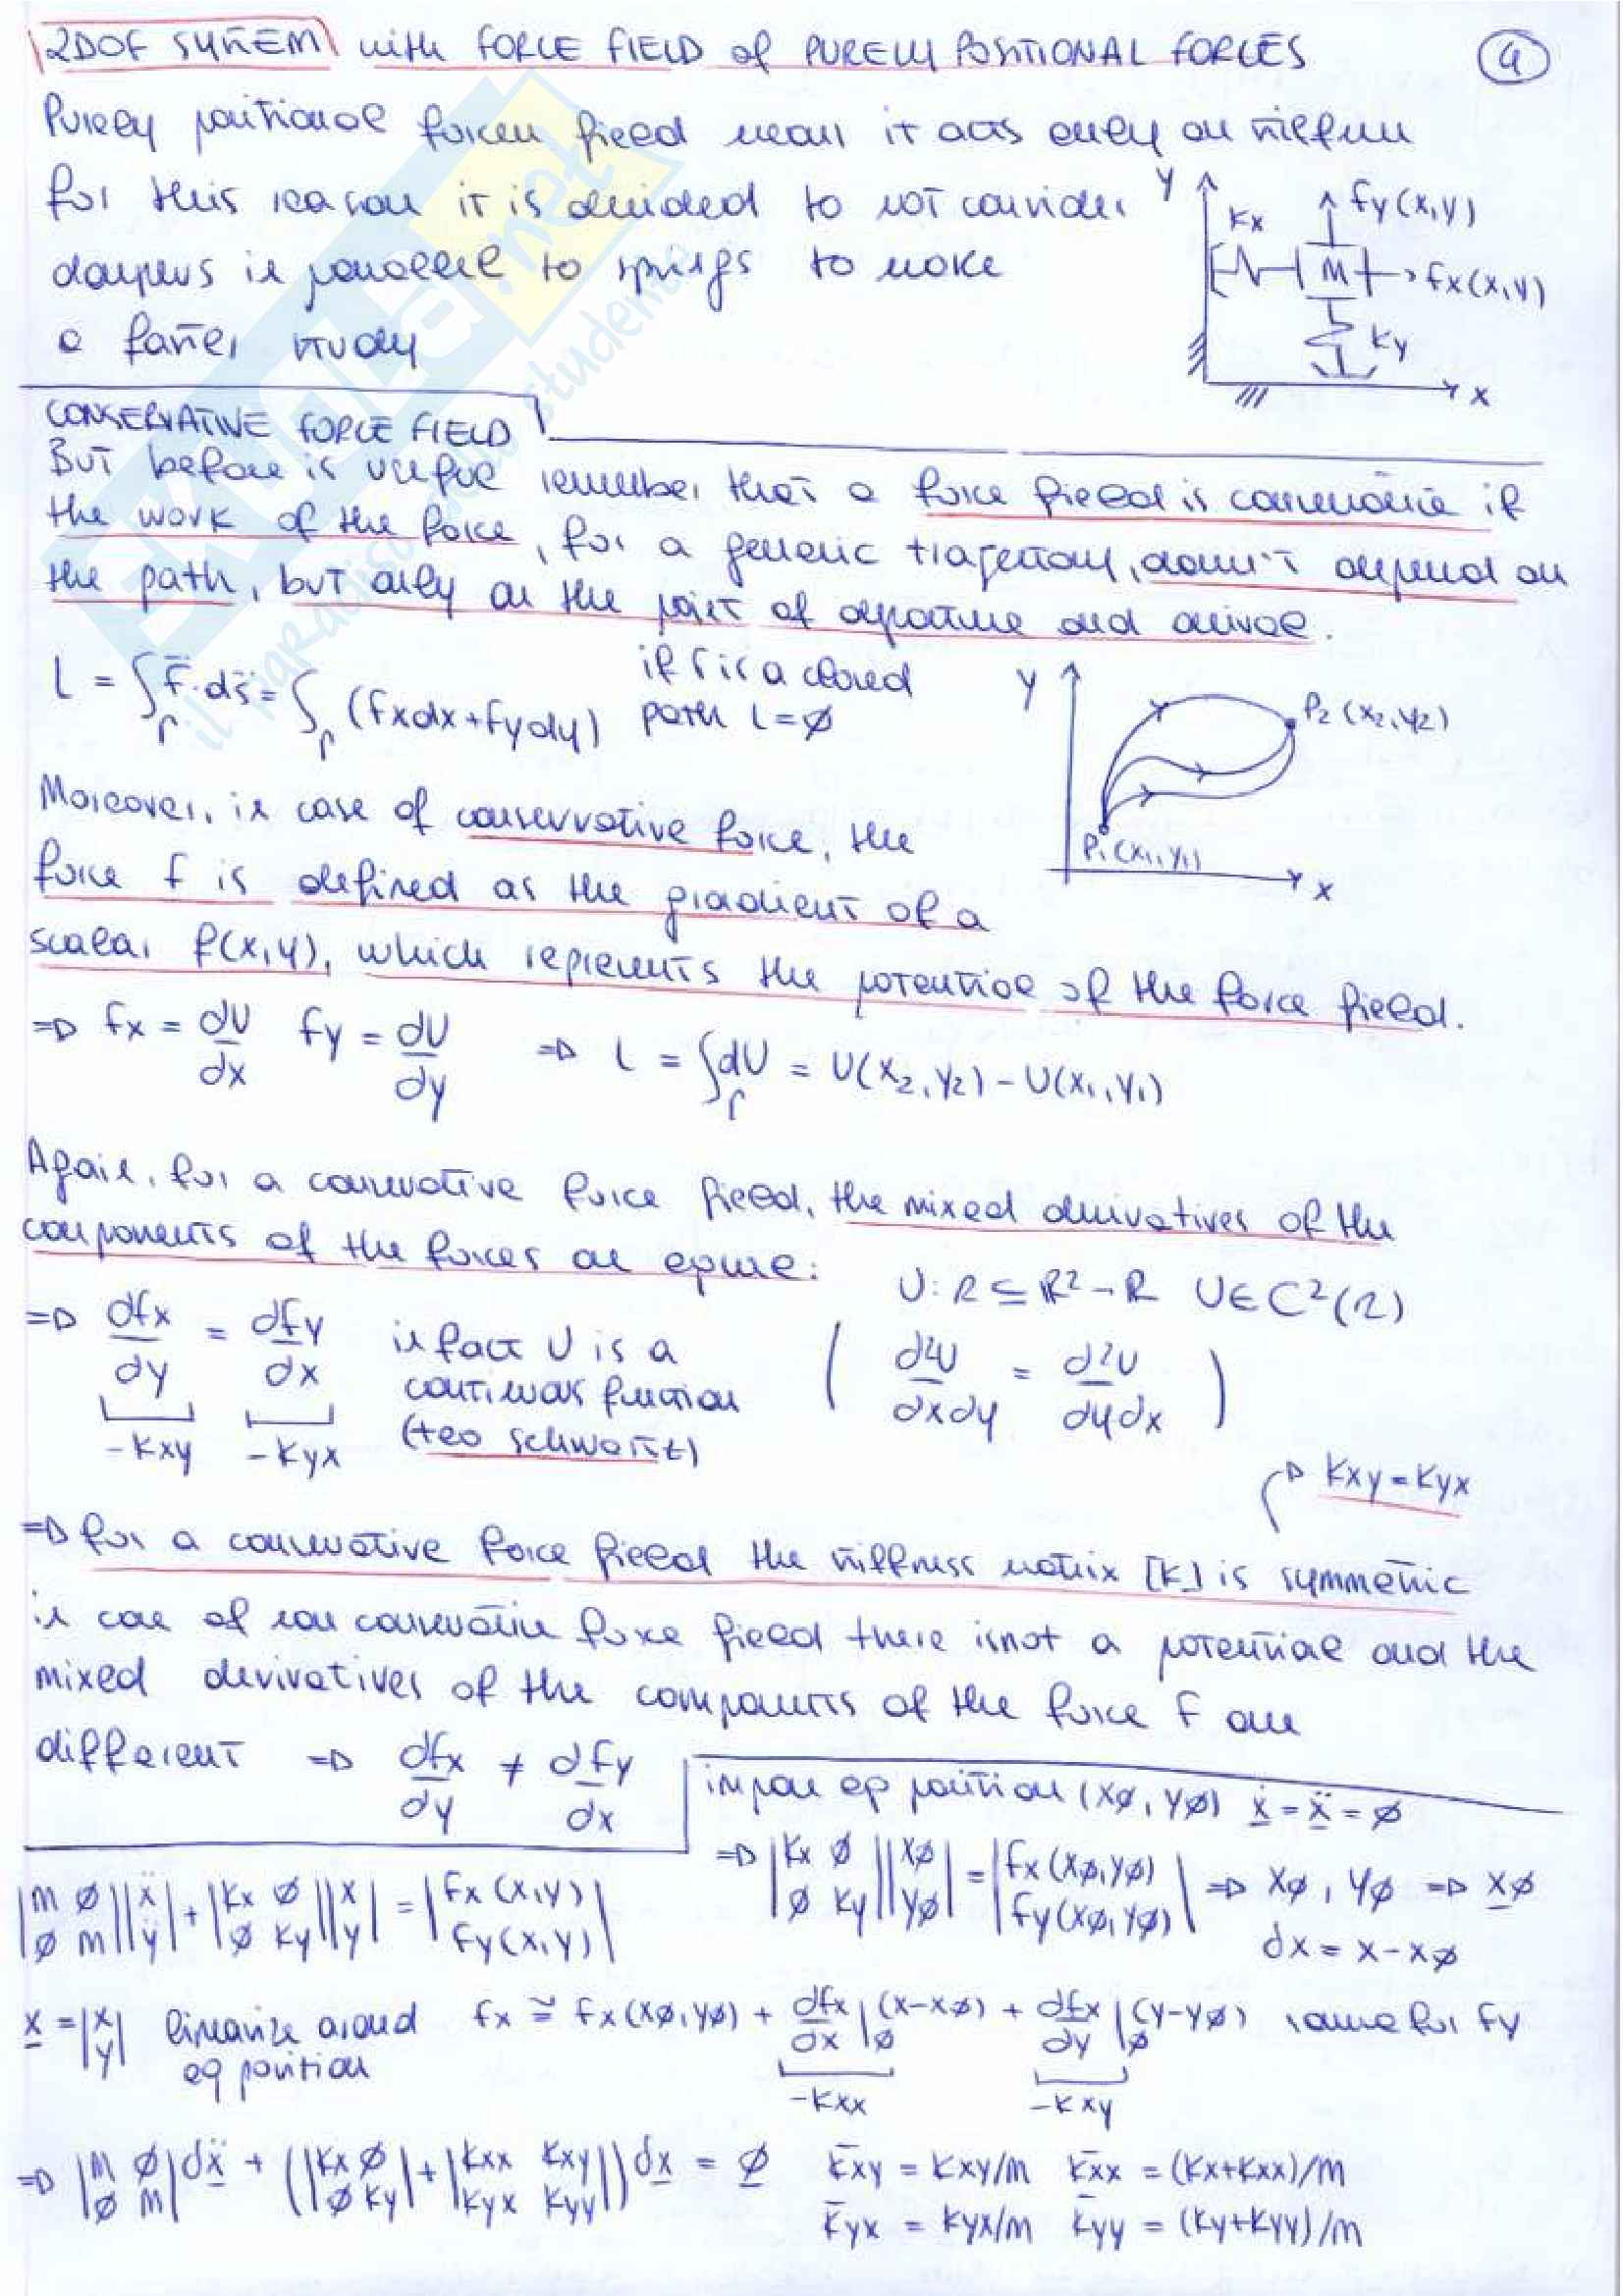 2DOF SYSTEM with FORCE FIELD of PURELY POSITIONAL FORCES
4
Purely positional forces field mean it acts only on stiffness
for this reason it is decided to not consider
dampers in parallel to springs to make
a faster study
y
kx
fy(x,y)
m
fx(x,y)
ky
x
CONSERVATIVE FORCE FIELD
But before is useful remember that a force field is conservative if
the work of the force, for a generic trajectory, doesn't depend on
the path, but only on the point of departure and arrival.
L = ∫Γ F̄·ds̄ = ∫Γ (fxdx+fydy) if Γ is a closed
path L=ø
y
P2 (x2,y2)
P1(x1,y1)
x
Moreover, in case of conservative force, the
force f is defined as the gradient of a
scalar f(x,y), which represents the potential of the force field.
=> fx = dU/dx fy = dU/dy => L = ∫Γ dU = U(x2,y2) - U(x1,y1)
Again, for a conservative force field, the mixed derivatives of the
components of the forces are equal:
U: Ω ⊆ R² → R U ∈ C²(Ω)
=> dfx/dy = dfy/dx in fact U is a
continuous function
(teo schwartz)
( d²U/dxdy = d²U/dydx )
-kxy -kyx
=> kxy = kyx
=> for a conservative force field the stiffness matrix [k] is symmetric
in case of non conservative force field there is not a potential and the
mixed derivatives of the components of the force F are
different => dfx/dy ≠ dfy/dx
impose eq position (xø, yø) ẋ = ẍ = ø
=> |kx ø; ø ky| |xø; yø| = |fx(xø,yø); fy(xø,yø)| => xø, yø => xø
dx = x - xø
|m ø; ø m| |ẍ; ÿ| + |kx ø; ø ky| |x; y| = |fx(x,y); fy(x,y)|
x = |x; y| linearize around
eq position
fx ≅ fx(xø,yø) + dfx/dx|ø (x-xø) + dfx/dy|ø (y-yø) same for fy
-kxx -kxy
=> |m ø; ø m| dẍ + (|kx ø; ø ky| + |kxx kxy; kyx kyy|) dx = ø
k̄xy = kxy/m k̄xx = (kx+kxx)/m
k̄yx = kyx/m k̄yy = (ky+kyy)/m
SKUOLA.net
il paradiso dello studente